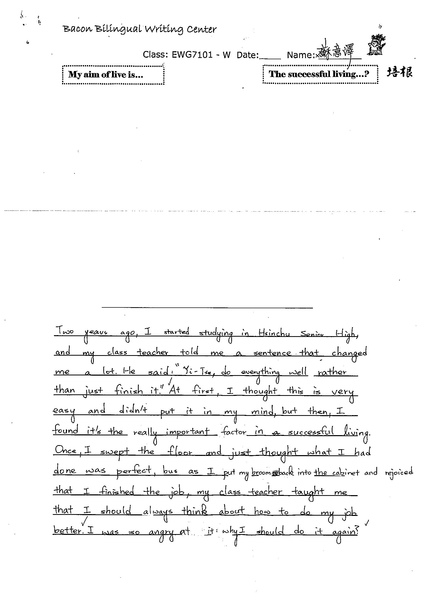 Bacon Bilingual Writing Center
Class: EWG7101 - W Date:____ Name: 蘇
My aim of live is...
The successful living...?
培根
Two years ago, I started studying in Hsinchu Senior High,
and my class teacher told me a sentence that changed
me a lot. He said: "Yi-Tse, do everything well rather
than just finish it." At first, I thought this is very
easy and didn't put it in my mind, but then, I
found it's the really important factor in a successful living.
Once, I swept the floor and just thought what I had
done was perfect, but as I put my broom back into the cabinet and rejoiced
that I finished the job, my class teacher taught me
that I should always think about how to do my job
better. I was so angry at it: why I should do it again?